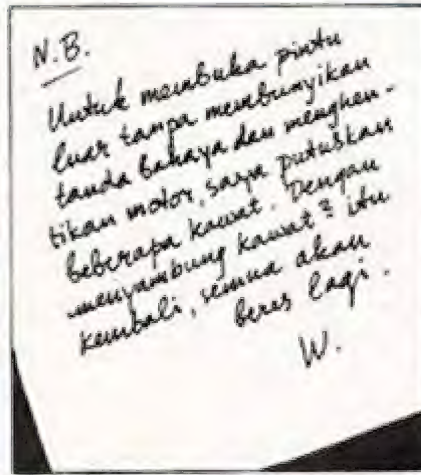 N.B.
Untuk membuka pintu
luar tanpa membunyikan
tanda bahaya dan menghen-
tikan motor, saya putuskan
beberapa kawat. Dengan
menyambung kawat² itu
kembali, semua akan
beres lagi.
W.